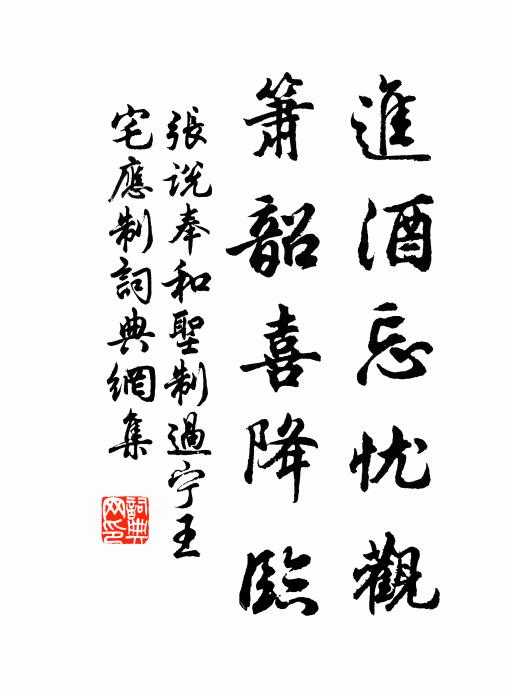 進酒忘忧觀
簫韶喜降臨
張说奉和聖制過宁王
宅應制詞典網集
詞典网印